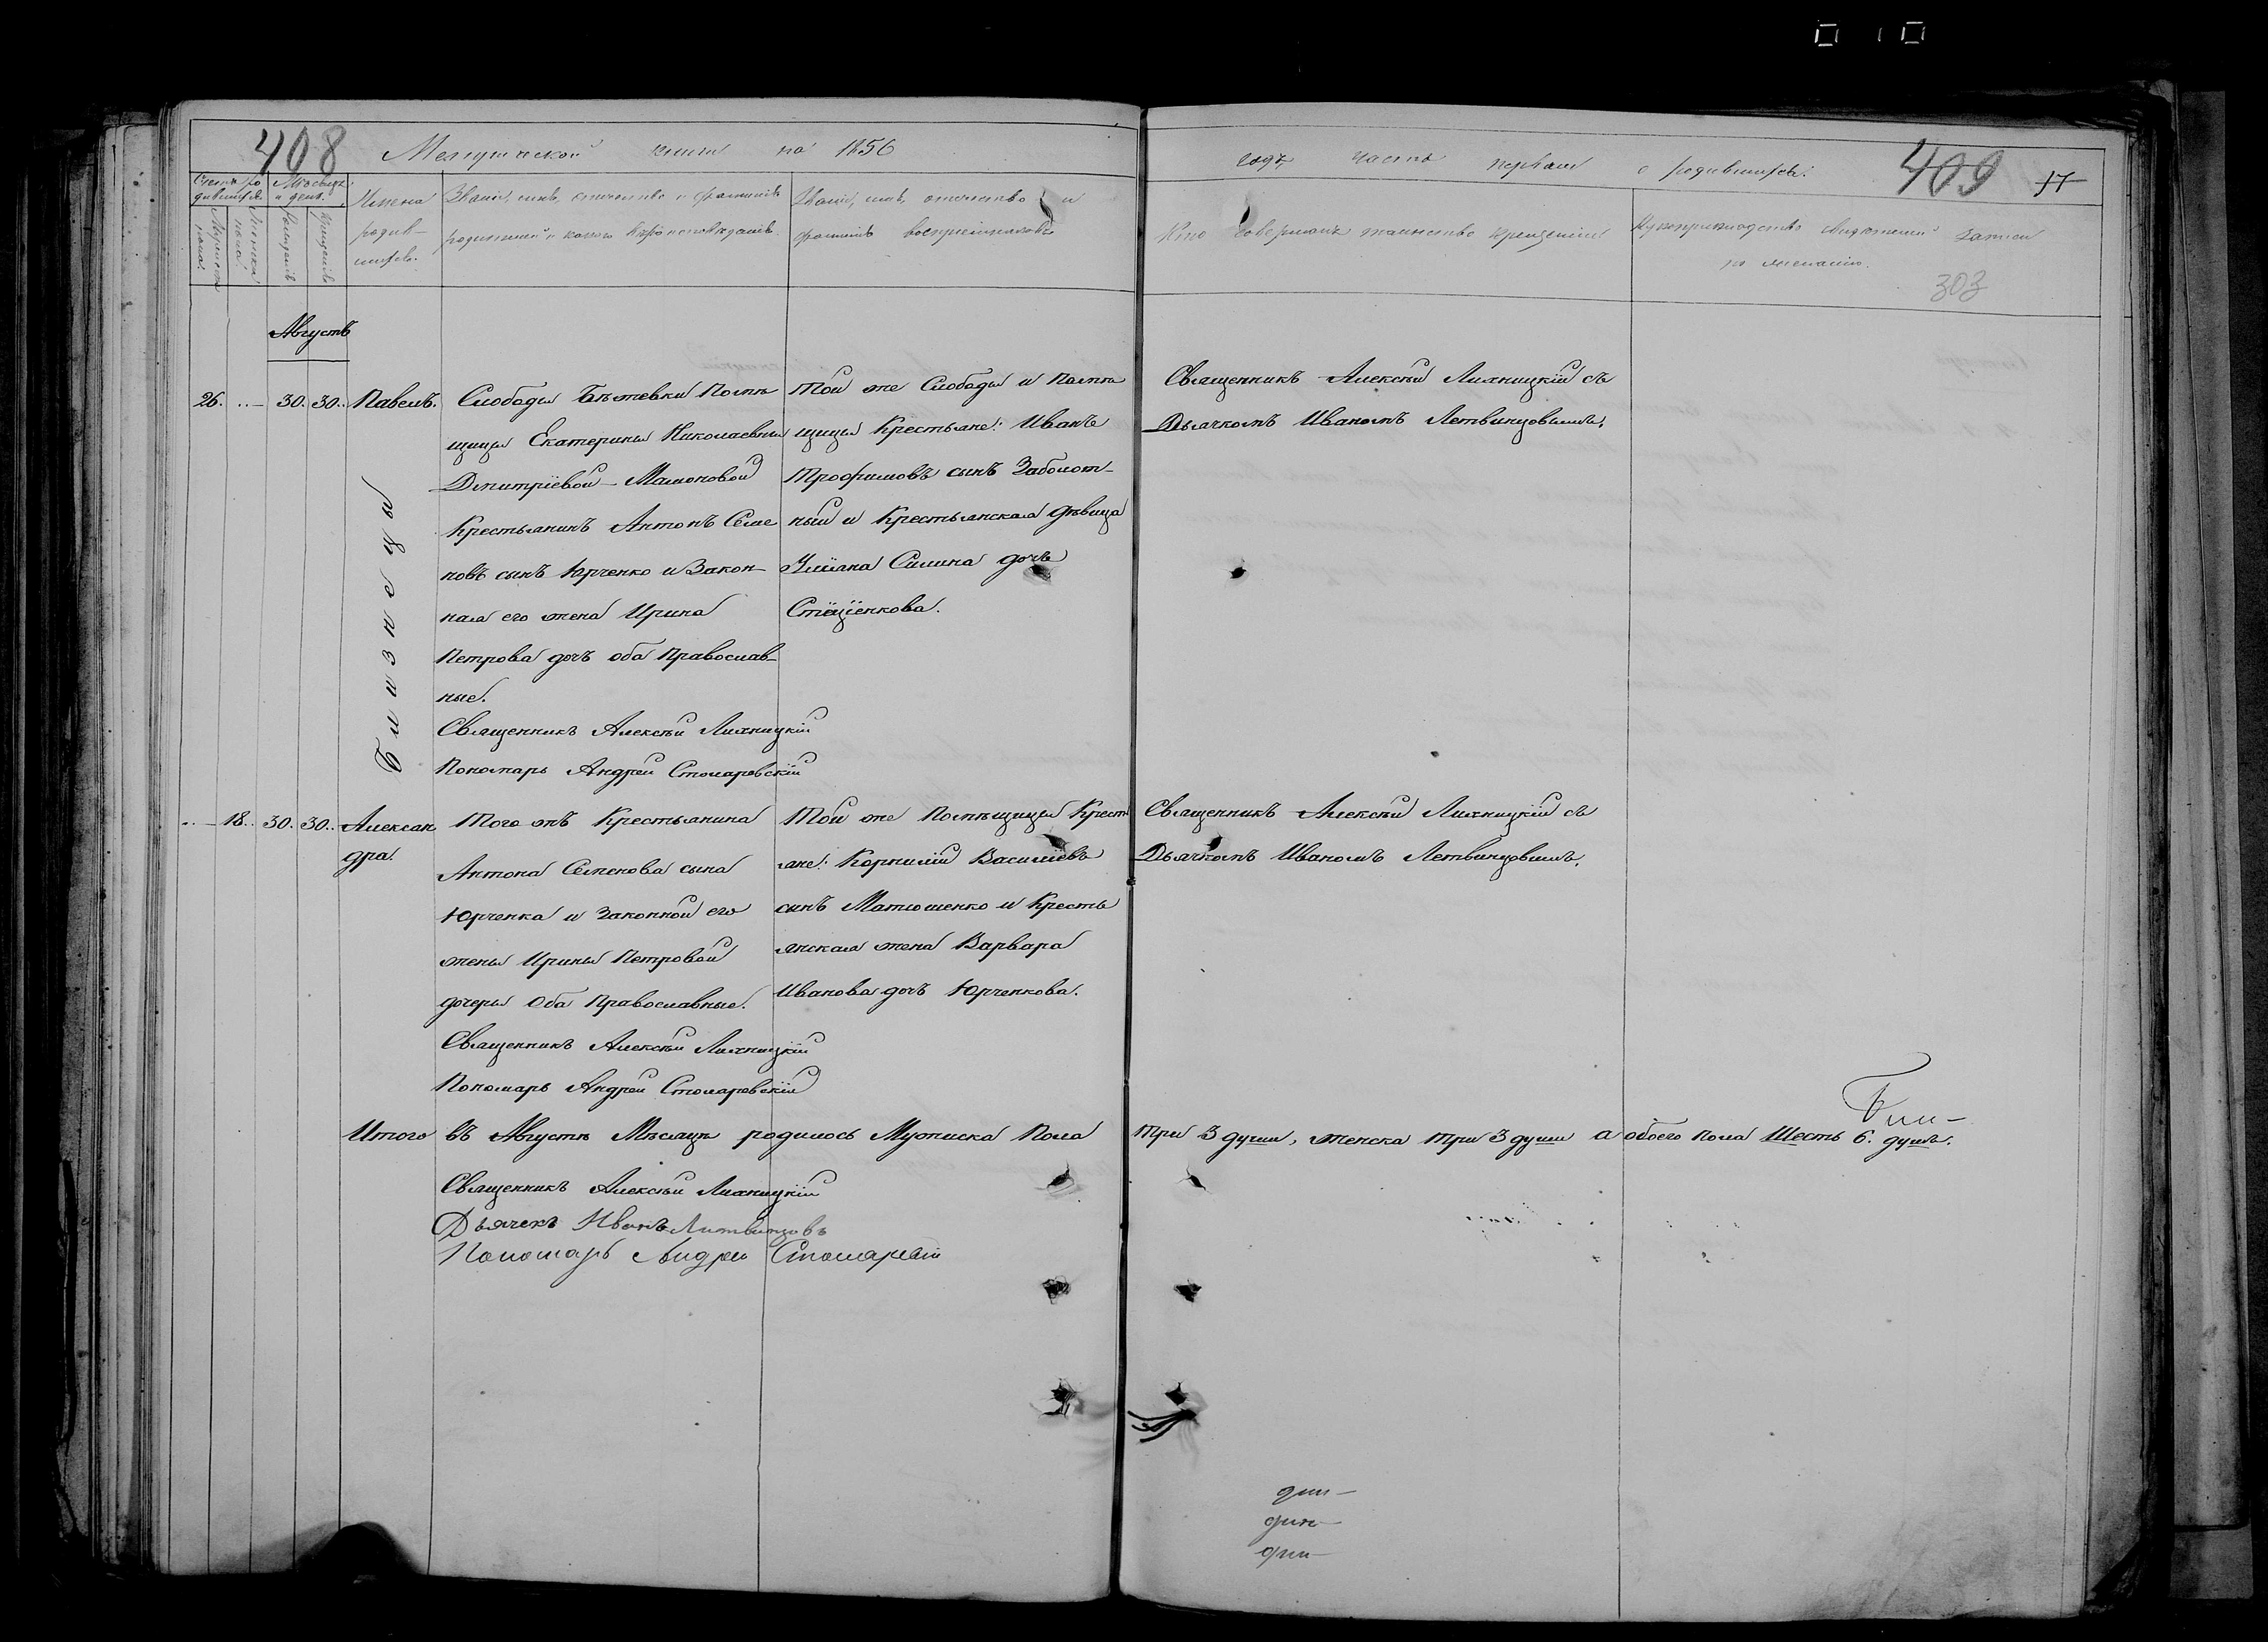 408
Метрической книги на 1856
годъ часть первая о родившихся.
409
17
Счетъ родившихся.
Мужеска пола.
Женска пола.
Мѣсяцъ и день.
Рожденія
Крещенія
Имена
родив-
шихся.
Званіе, имя, отчество и фамилія
родителей и какого вѣроисповѣданія.
Званіе, имя, отчество и
фамилія воспріемниковъ
Кто совершалъ таинство крещенія
Рукоприкладство свидѣтелей записи
по желанію.
303
Августъ
26. 30. 30. Павелъ.
Близнецы
Слободы Помѣ
щицы Екатерины Николаевны
Дмитріевой-Мамоновой
Крестьянинъ Антонъ Семе
новъ сынъ Юрченко и Закон-
ная его жена Ирина
Петрова дочь оба Православ-
ные.
Священникъ Алексѣй Лихницкій
Пономарь Андрей Столяревскій
Той же Слободы и Помѣ
щицы Крестьяне: Иванъ
Трофимовъ сынъ Заболот-
ный и Крестьянская дѣвица
Уліана Силина дочь
Стеценкова.
Священникъ Алексѣй Лихницкій съ
Дьячкомъ Иваномъ Летвинцовымъ.
18. 30. 30. Алексан
дра.
Того жъ Крестьянина
Антона Семенова сына
Юрченка и Законной его
жены Ирины Петровой
дочери Оба Православные.
Священникъ Алексѣй Лихницкій
Пономарь Андрей Столяревскій
Той же Помѣщицы Кресть
яне: Корнилій Василіевъ
сынъ Матюшенко и Кресть
янская жена Варвара
Иванова дочь Юрченкова.
Священникъ Алексѣй Лихницкій съ
Дьячкомъ Иваномъ Летвинцовымъ.
Итого въ Августѣ Мѣсяцѣ родилось Мужеска Пола три 3 души, женска три 3 души а обоего пола Шесть 6. душъ.
Священникъ Алексѣй Лихницкій
Дьячекъ Иванъ Литвинцовъ
Пономарь Андрей